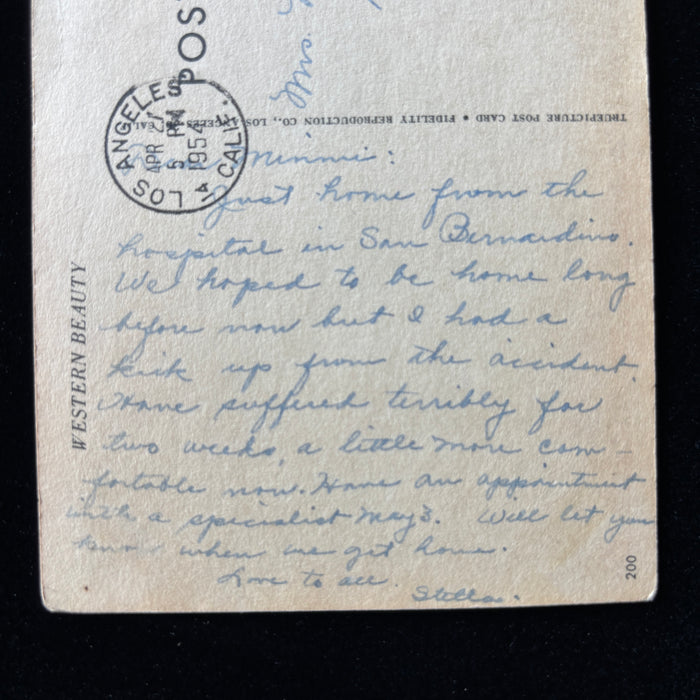 POS
Mrs.
TRUEPICTURE POST CARD • FIDELITY REPRODUCTION CO., LOS ANGELES CAL
LOS ANGELES CALIF.
APR 27
6 PM
1954
WESTERN BEAUTY
Dear Minnie:
Just home from the
hospital in San Bernardino.
We hoped to be home long
before now but I had a
kick up from the accident.
Have suffered terribly for
two weeks, a little more com-
fortable now. Have an appointment
with a specialist May 3. Will let you
know when we get home.
Love to all.
Stella.
200